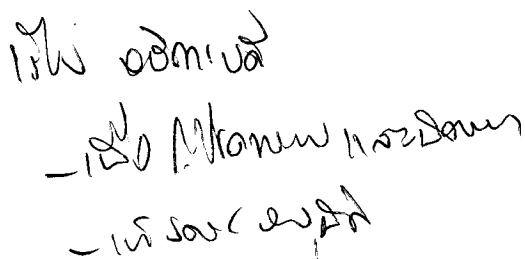 เรียน อธิการบดี
- เพื่อ โปรดทราบ และพิจารณา
- เห็นควรอนุมัติ